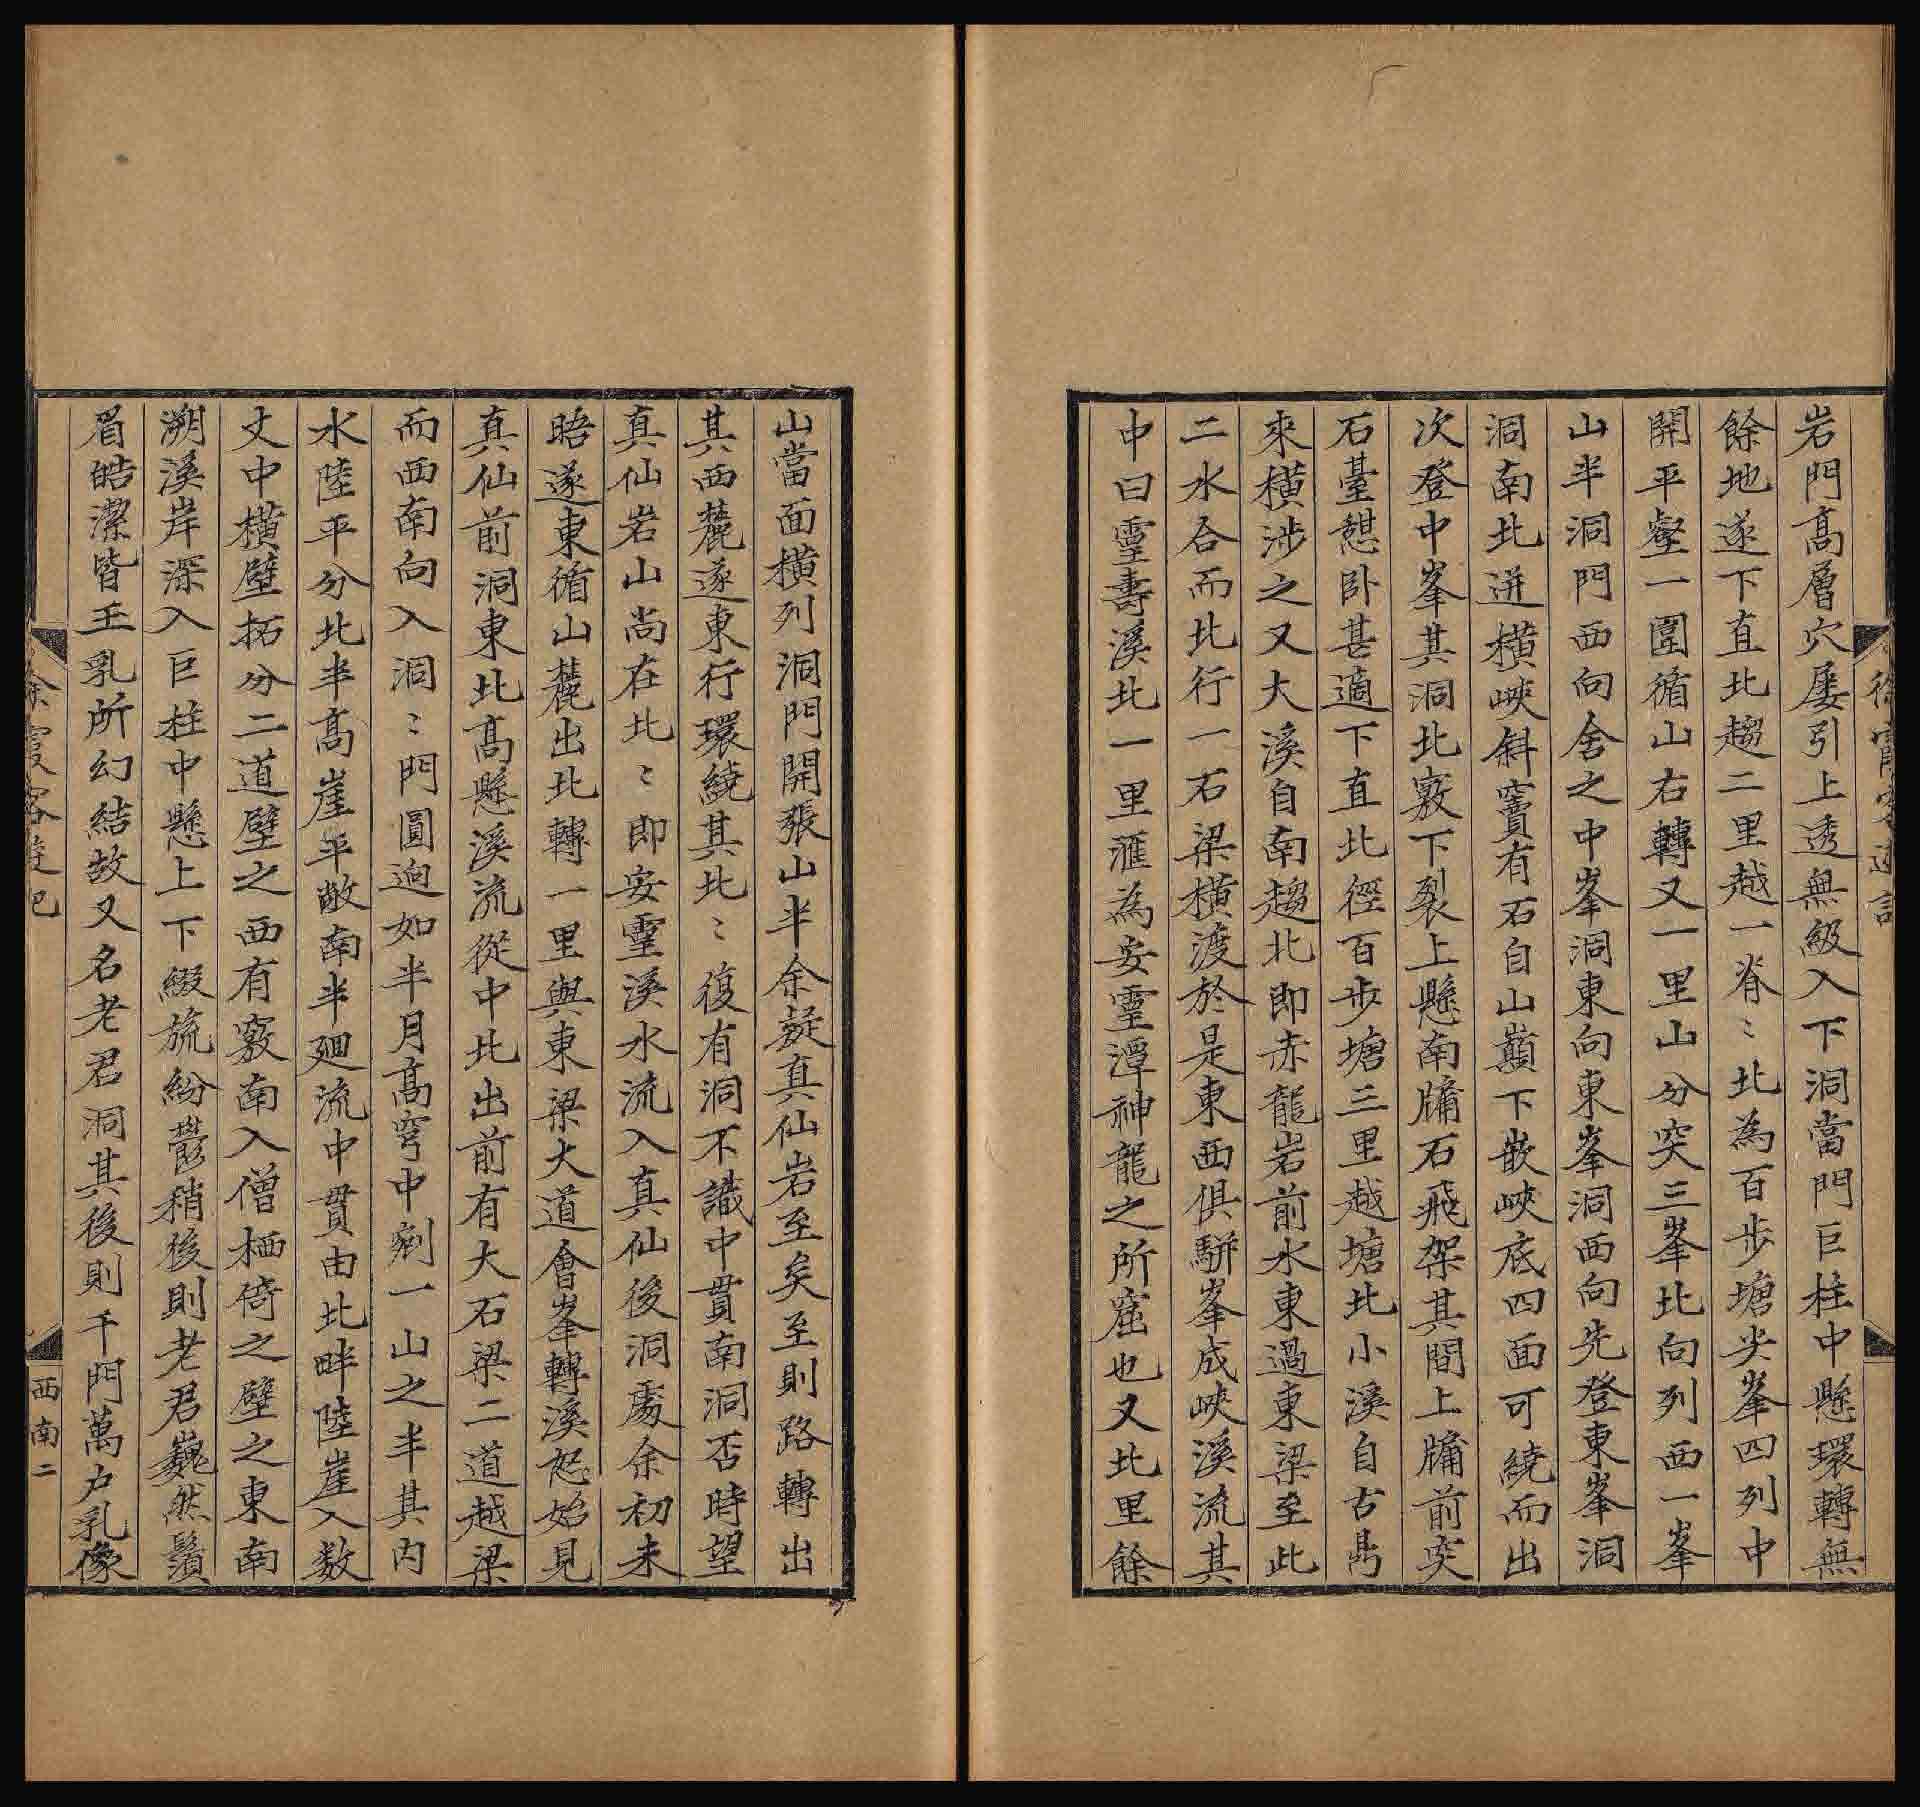 岩門髙層穴屡引上透無級入下洞當門巨柱中懸環轉無
餘地遂下直北趨二里越一脊〻北為百步塘尖峯四列中
開平壑一圍循山右轉又一里山分突三峯北向列西一峯
山半洞門西向舍之中峯洞東向東峯洞西向先登東峯洞
洞南北迸横峽斜竇有石自山巔下嵌峽底四面可繞而出
次登中峯其洞北竅下裂上懸南牖石飛架其間上牖前突
石臺憇卧甚適下直北徑百步塘三里越塘北小溪自古鼎
來横涉之又大溪自南趨北即赤龍岩前水東過東梁至此
二水合而北行一石梁横渡於是東西俱駢峯成峽溪流其
中曰靈壽溪北一里滙為安靈潭神龍之所窟也又北里餘
徐霞客遊記
山當面横列洞門開張山半余疑真仙岩至矣至則路轉出
其西麓遂東行環繞其北〻復有洞不識中貫南洞否時望
真仙岩山尚在北〻即安靈溪水流入真仙後洞處余初未
晤遂東循山麓出北轉一里與東梁大道會峯轉溪囘始見
真仙前洞東北髙懸溪流從中北出前有大石梁二道越梁
而西南向入洞〻門圓逈如半月髙穹中剜一山之半其内
水陸平分北半髙崖平敞南半廻流中貫由北畔陸崖入数
丈中横壁拓分二道壁之西有竅南入僧栖倚之壁之東南
溯溪岸深入巨柱中懸上下綴旒紛鬱稍後則老君巍然鬚
眉皓潔皆玉乳所幻結故又名老君洞其後則千門萬户乳像
徐霞客遊記
西南二